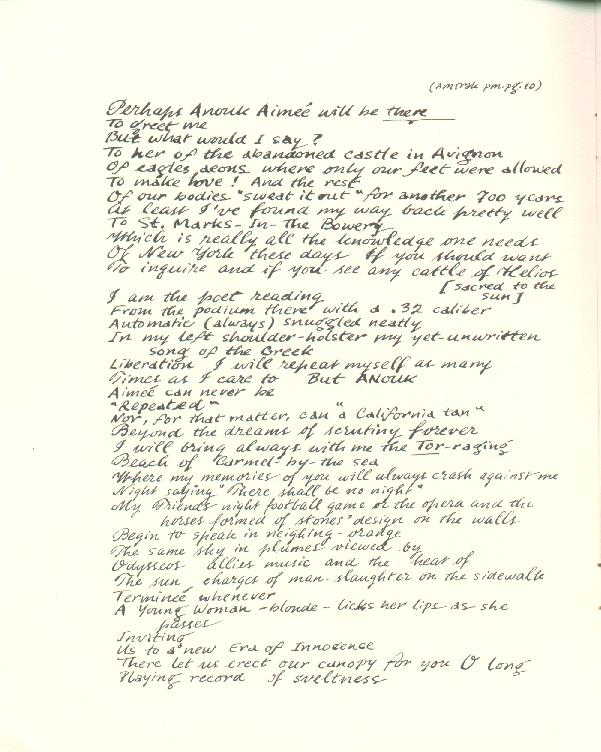 (Amtrak pm. pg. 10)
Perhaps Anouk Aimeé will be there
To greet me
But what would I say?
To her of the abandoned castle in Avignon
Of eagles, aeons where only our feet were allowed
To make love! And the rest
Of our bodies "sweat it out" for another 700 years
At least I've found my way back pretty well
To St. Marks-In-The Bowery
Which is really all the knowledge one needs
Of New York these days If you should want
To inquire and if you see any cattle of Helios
[sacred to the
sun]
I am the poet reading
From the podium there with a .32 caliber
Automatic (always) snuggled neatly
In my left shoulder-holster my yet-unwritten
song of the Greek
Liberation I will repeat myself as many
Times as I care to But Anouk
Aimeé can never be
"Repeated"
Nor, for that matter, can a "California tan"
Beyond the dreams of scrutiny forever
I will bring always with me the Tor-raging
Beach of Carmel-by-the sea
Where my memories of you will always crash against me
Night saying "There shall be no night"
My Friends' night football game or the opera and the
horses formed of stones' design on the walls
Begin to speak in neighing-orange
The same sky in plumes viewed by
Odysseos allies music and the heat of
The sun charges of man-slaughter on the sidewalk
Termineé whenever
A Young Woman - blonde - licks her lips as she
passes
Inviting
Us to a new Era of Innocence
There let us erect our canopy for you O long
Playing record of sveltness